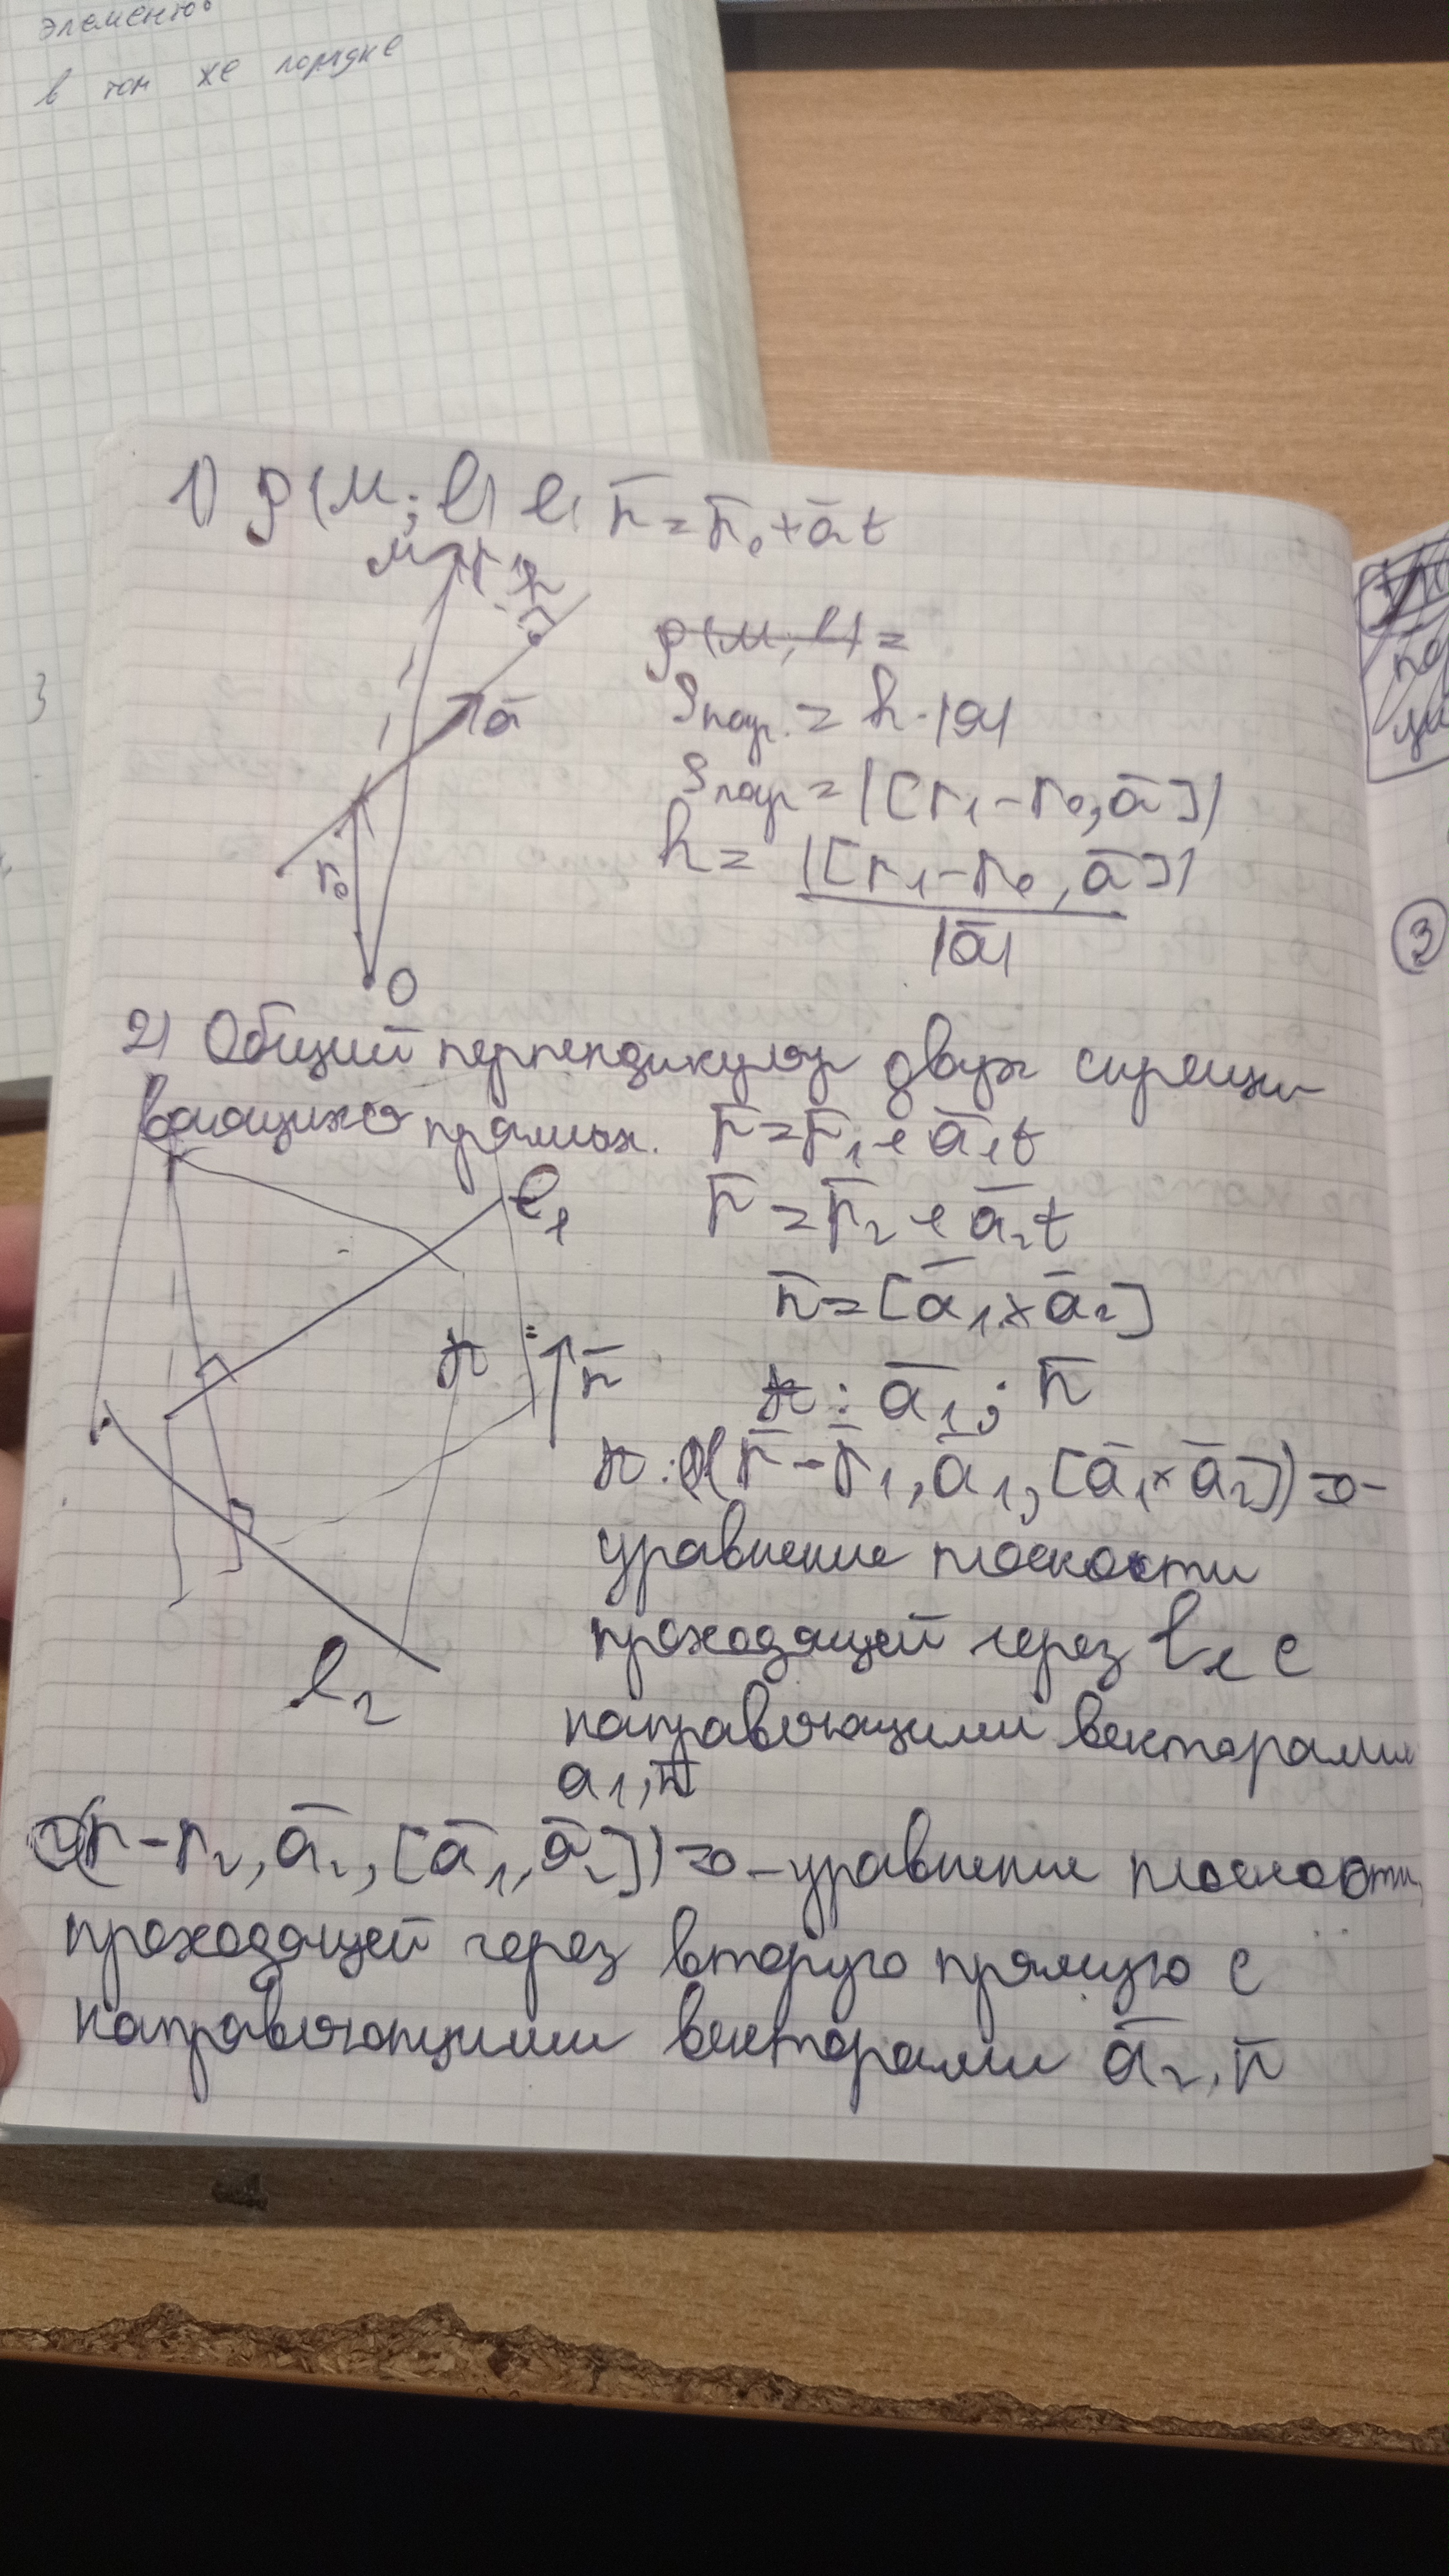 элементов
в том же порядке
3
1) ρ(M; l) l: r̄ = r̄₀ + āt
M r₁ h
ρ(M; l) =
ā
Sпар. = h · |a|
Sпар = |[r₁ - r₀, ā]|
r₀
h = |[r₁ - r₀, ā]|
|ā|
O
3
2) Общий перпендикуляр двух скрещи-
вающихся прямых. r̄ = r̄₁ + ā₁t
l₁
r̄ = r̄₂ + ā₂t
n̄ = [ā₁ × ā₂]
π n̄
π: ā₁; n̄
π: (r̄ - r̄₁, ā₁, [ā₁ × ā₂]) = 0 -
уравнение плоскости
проходящей через l₁ с
l₂
направляющими векторами
a₁, n̄
(r - r₂, ā₂, [ā₁, ā₂]) = 0 - уравнение плоскости,
проходящей через вторую прямую с
направляющими векторами ā₂, n̄